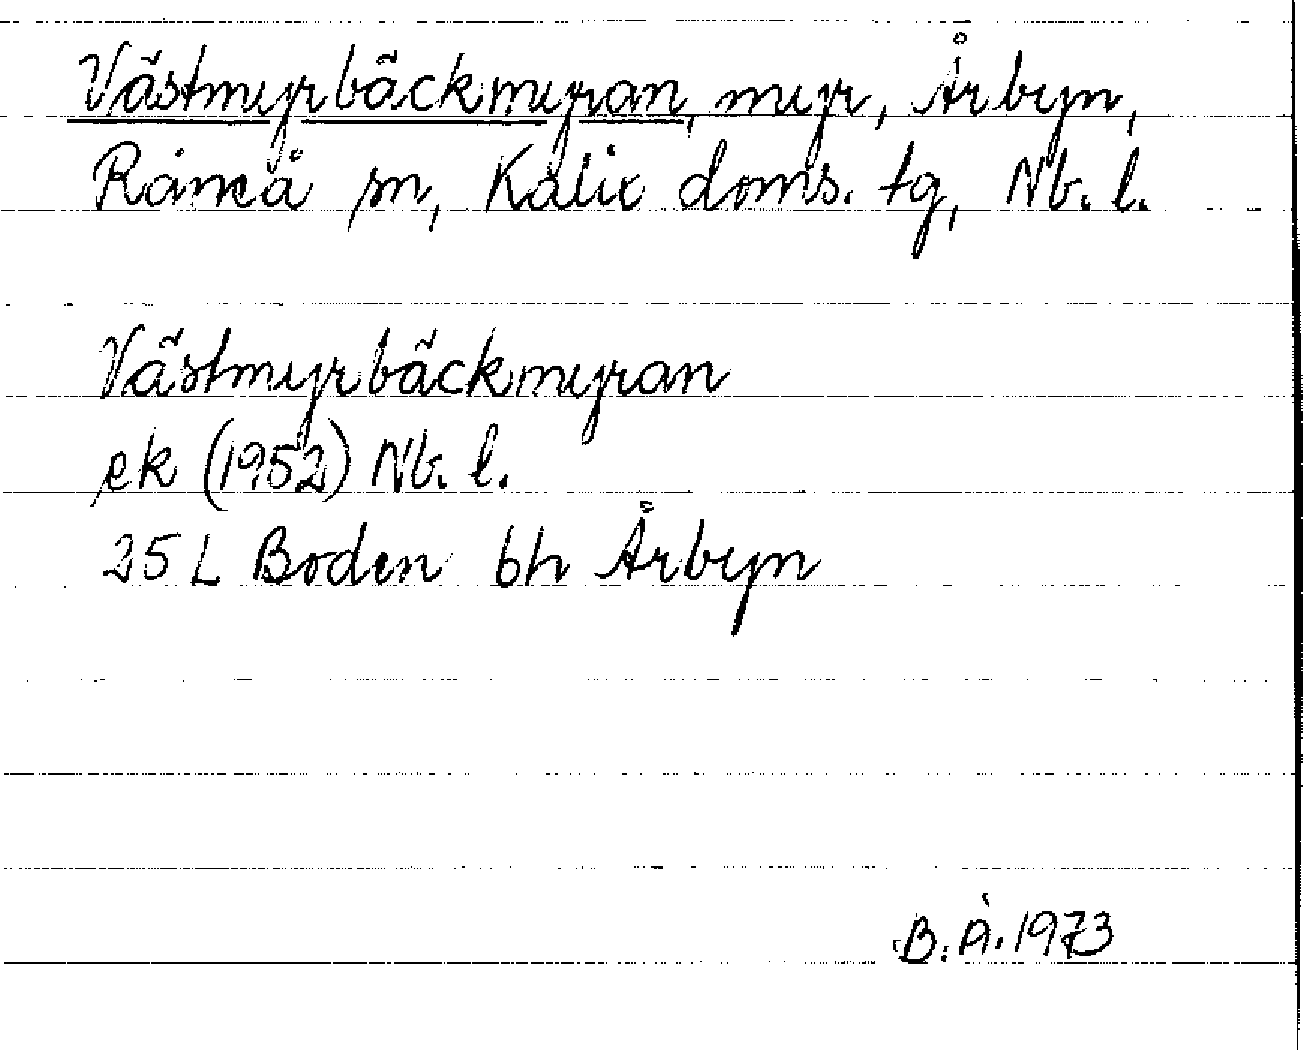 Västmyrbäckmyran, myr, Årbyn,
Råneå sn, Kalix doms. tg, Nb. l.
Västmyrbäckmyran
ek (1952) Nb. l.
25 L Boden bh Årbyn
B. Å. 1973